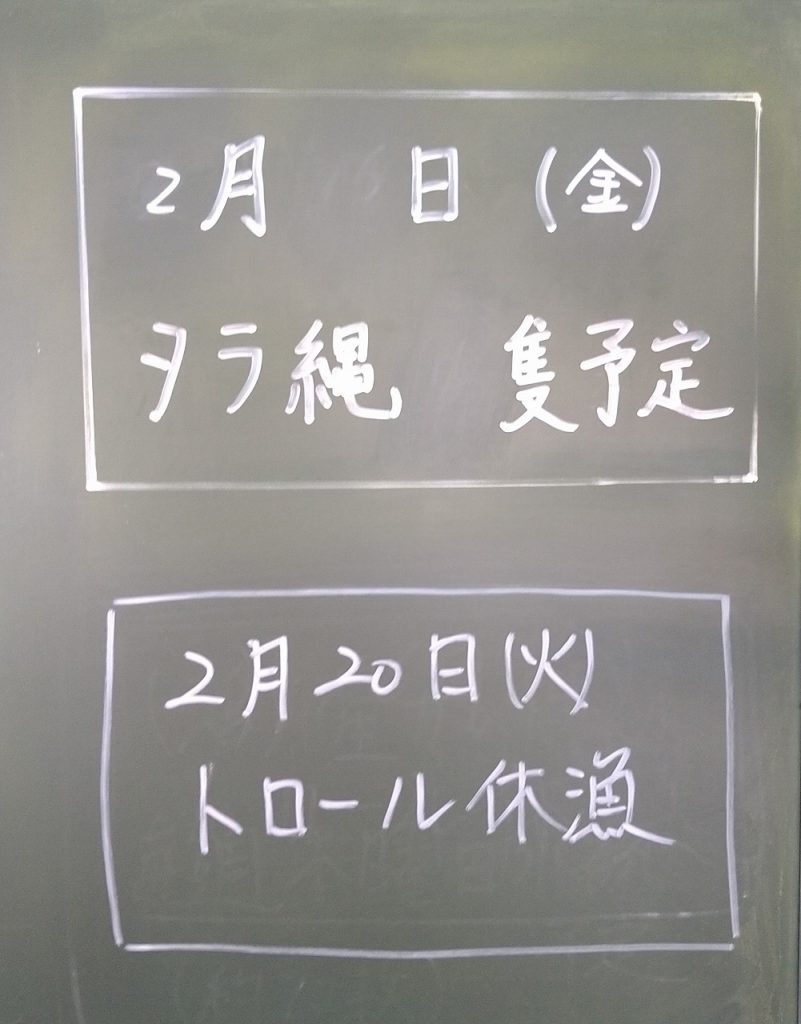 2月 日(金)
タラ縄 隻予定
2月20日(火)
トロール休漁